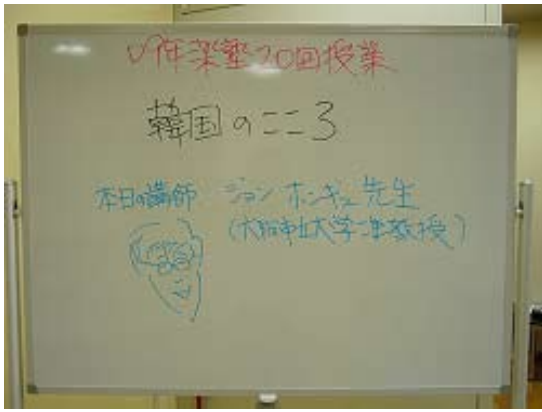 楽塾20回授業
韓国のこころ
本日の講師 ジョン ホンギュ先生
(大阪市立大学准教授)